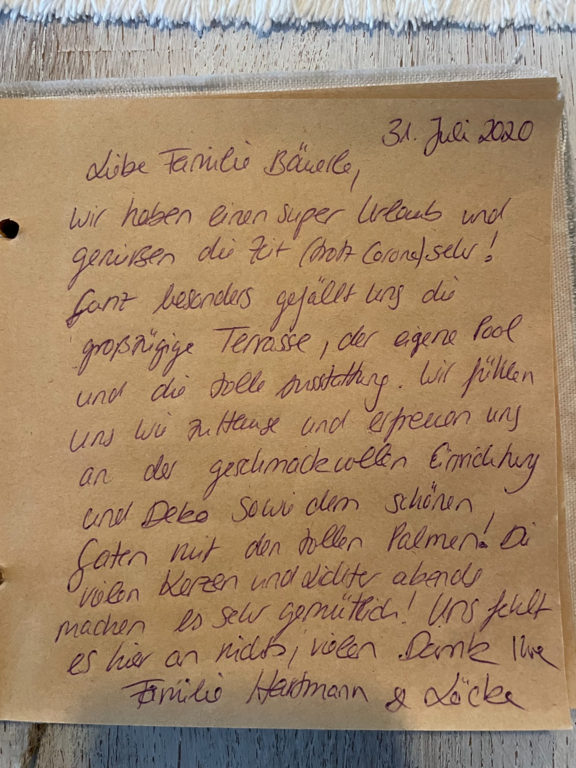 31. Juli 2020
Liebe Familie Bäuerle,
wir haben einen super Urlaub und
genießen die Zeit (trotz Corona) sehr!
Ganz besonders gefällt uns die
großzügige Terrasse, der eigene Pool
und die tolle Ausstattung. Wir fühlen
uns wie zu Hause und erfreuen uns
an der geschmackvollen Einrichtung
und Deko sowie dem schönen
Gaten mit den tollen Palmen! Die
vielen Kerzen und Lichter abends
machen es sehr gemütlich! Uns fehlt
es hier an nichts, vielen Dank Ihre
Familie Hartmann & Löcke